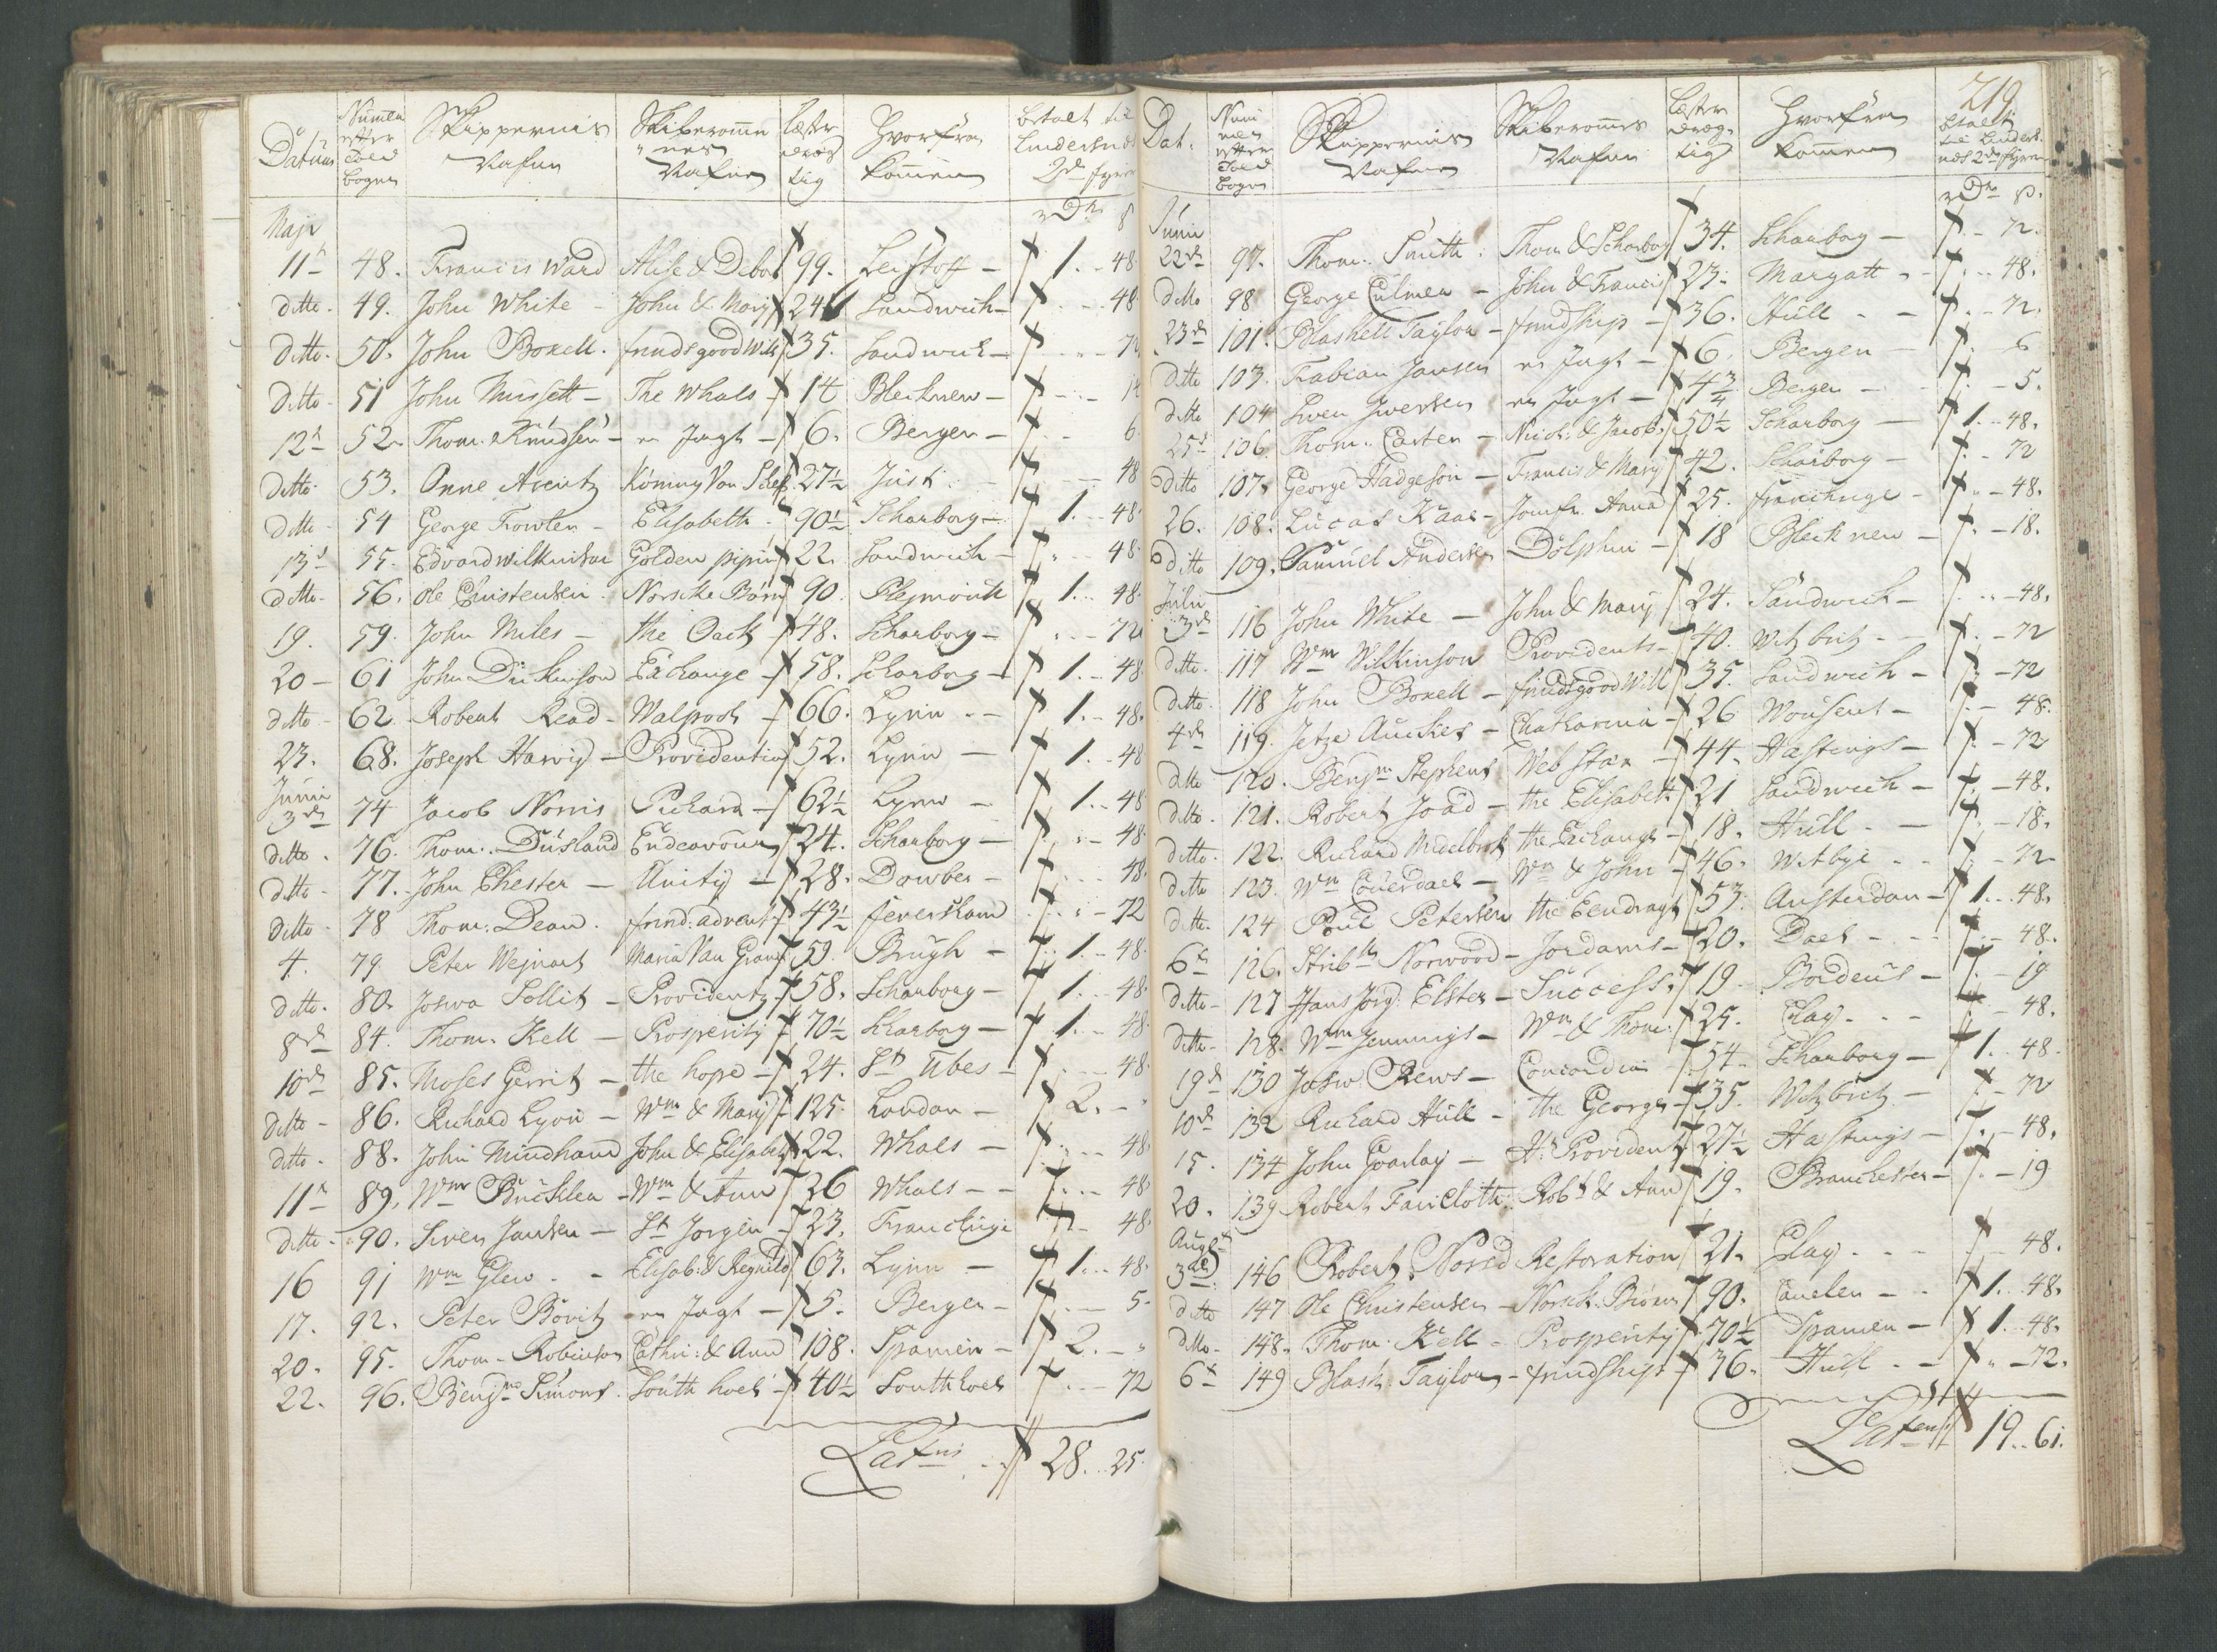 Datum Numer efter Told bogen Skippernis Nafne Skiberomme nes Nafne Læster dræg tig Hvorfra kommen betalt til Lindersnes 2de fyrer
rDr ß
Maji
11t 48. Francis Ward Alise & Debor 99. Leistoff - 1. - 48
ditto 49. John White - John & Mary 24 Sandwich - 48
ditto 50. John Boxell. friends good Will 35. Sandwich - 72
ditto 51 John Mussett - The Whals 14 Blecknew - 14
12t 52. Thom. Knudsen - en Jagt - 6. Bergen - 6
ditto 53. Onne Arentz Konning Von 27½ Just 48
ditto 54 George Fowler - Elisabeth 90½ Scharborg - 1. - 48
13t 55. Edvard Wilkinson Golden pipin 22. Sandwich - 48
ditto 56. Ole Christensen. Norske Børn 90. Pleymouth 1. - 48
19. 59. John Miles - the Oack 48. Scharborg - 72
20 - 61 John Dickinson Exchange - 58. Scharborg - 1. - 48
ditto - 62. Robert Read - Walpool - 66. Lynn - 1. - 48.
23. 68. Joseph Harvij - Providentia 52. Lynn - 1. - 48
Junii
3de 74 Jacob Norris Richard - 62½ Lynn - 1. - 48
ditto. 76. Thom. Dusland Endeavour 24. Scharborg - 48
ditto. 77. John Chester - Unity - 28. Dowber - 48
ditto - 78 Thom. Dean. frind. advent 43½ feversham - 72
4. 79. Peter Wejnart Maria Van 59. Brugh - 1. - 48
ditto. 80. Joswa Sollit - Providenty 58. Scharborg - 1. - 48
8de 84. Thom. Kell - Prosperity 70½ Scharborg - 1. - 48
10de 85. Moses Gerrit - the hope - 24. St Ubes - 48
ditto - 86. Richard Lyon - Wm & Mary 125. London - 2. -
ditto. 88. John Mindhand John & Elisabet 22. Whals - 48
11t 89. Wm Buckler - Wm & Ann 26 Whals - 48
ditto - 90. Siven Jansen - St Jorgen 23. Franckrige 48
16 91 Wm Glew. - Elisab: & Regnild 63. Lynn - 1. - 48
17. 92. Peter Bovitz en Jagt - 5. Bergen - 5
20. 95. Thom - Robinson Cathri: & Ann 108. Spanien - 2. -
22. 96. Benjm Simons. South hoels - 40½ South hoels 72
Latus 28. 25

219
Dat. Num mer efter Told bogen Skippernis Nafne Skiberommes Nafne Læster dræg tig Hvorfra kommen betalt til Linders nes 2de fyrer
rDr ß.
Junii
22de 97. Thom. Smith: Thom & Scharborg 34. Scharborg - 72.
ditto 98 George Culmer - John & Francis 23. Margatt - 48.
23de 101. Blashell Taylor - frindship - 36. Hull - 72.
ditto 103. Fabian Jansen en Jagt - 6. Bergen 6
ditto 104 Iwer Jwersen en Jagt - 4¾ Bergen - 5.
25t 106. Thom. Carter - Nich: & Jacob. 50½ Scharborg - 1. - 48.
ditto 107. George Hadgeson - Francis & Mary 42. Scharborg - 72
26. 108. Lucas Kaae - Jomfr. Anna 25. franckrige - 48.
ditto 109. Samuel Andersen Dolphin - 18 Bleck new - 18.
Julii
3de 116 John White - John & Mary 24. Sandwich - 48.
ditto. 117 Wm Wilkinson Providents - 40. Witzbitz - 72
ditto. 118 John Boxell - friends good Will 35. Sandwich - 72
4de 119. Jetze Auckes - Chatharina - 26 Wonsent - 48.
ditto 120. Benjm Stephens Web Star - 44. Hastings - 72
ditto. 121. Robert Joad - the Elisabeth 21 Sandwich - 48.
ditto. 122. Richard Middelbrok the Exchange - 18. Hull - 18.
ditto 123. Wm Couerdael - Wm & John - 46. Witbye - 72
ditto. 124 Poul Petersen the Eendragt 53. Amsterdam - 1. - 48.
6t 126. Norwood - Jordams - 20. Dael - 48.
ditto - 127 Hans Jorg. Elster - Success. 19. Bordeus - 19
ditto - 128. Wm Jennings - Wm & Thom 25. Clay. - 48.
19de 130 Josw Rews - Concordia - 54. Scharborg - 1. - 48.
10de 132 Richard Hull - the George - 35. Witzbitz - 72
15. 134 John Goarlay - Provident 27½ Hastings - 48.
20. 139 Robert Faircloth Robt & Ann 19. Branchester - 19
Augst
3de 146 Robert Nosed Restoration 21. Clay. - 48.
ditto 147 Ole Christensen - Norsk. Børn 90. Canelen - 1. - 48.
ditto - 148. Thom. Kell - Prosperity 70½ Spanien - 1. - 48.
6t 149 Blash. Taylor - frindship - 36. Hull. - 72.
Latus 19. 61.